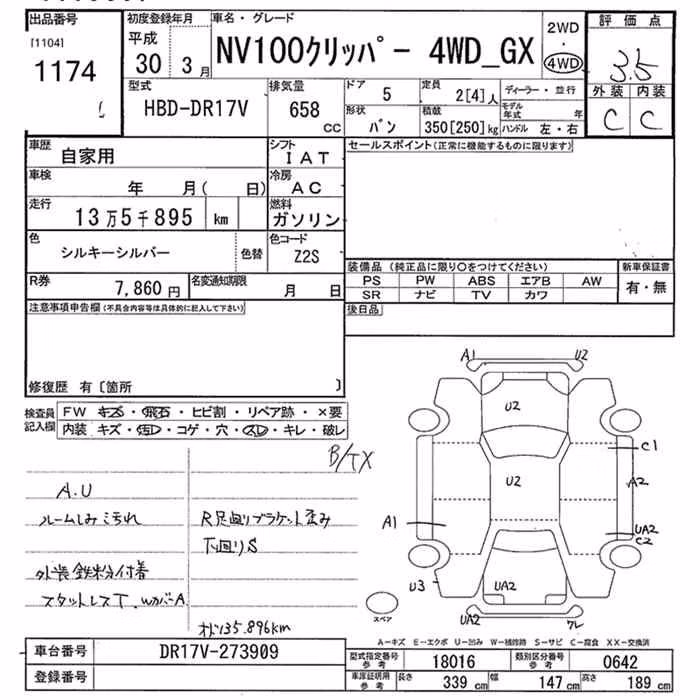 出品番号
[1104]
1174
初度登録年月
平成
30 3月
車名・グレード
NV100クリッパー 4WD_GX
2WD
・
4WD
評価点
3.5
外装 内装
C C
型式
HBD-DR17V
排気量
658
CC
ドア
5
定員
2[4]人
ディーラー・並行
形状
バン
積載
350[250]kg
モデル年式 年
ハンドル 左・右
車歴
自家用
シフト
IAT
セールスポイント(正常に機能するものに限ります)
車検
年 月( 日)
冷房
AC
走行
13万5千895 km
燃料
ガソリン
色
シルキーシルバー
色替
色コード
Z2S
装備品 (純正品に限り○をつけてください)
新車保証書
PS PW ABS エアB AW
SR ナビ TV カワ
有・無
R券
7,860円
名変通知期限
月 日
後日品
注意事項申告欄(不具合内容等は具体的に記入して下さい)
修復歴 有〔箇所 〕
検査員
記入欄
FW キズ・飛石・ヒビ割・リペア跡・×要
内装 キズ・汚レ・コゲ・穴・スレ・キレ・破レ
B/TX
A.U
ルームしみ汚れ
R足廻りブラケット歪み
下廻りS
外装鉄粉付着
スタットレスT. WカバーA
オド135.896km
A1 U2
U2
C1
U2
A2
A1
UA2
C2
U3
UA2
UA2
ワレ
スペア
A−キズ E−エクボ U−凹み W−補修跡 S−サビ C−腐食 XX−交換済
車台番号
DR17V-273909
登録番号
型式指定番号
参考
18016
類別区分番号
参考
0642
車庫証明用
参考
長さ
339cm
幅
147cm
高さ
189cm